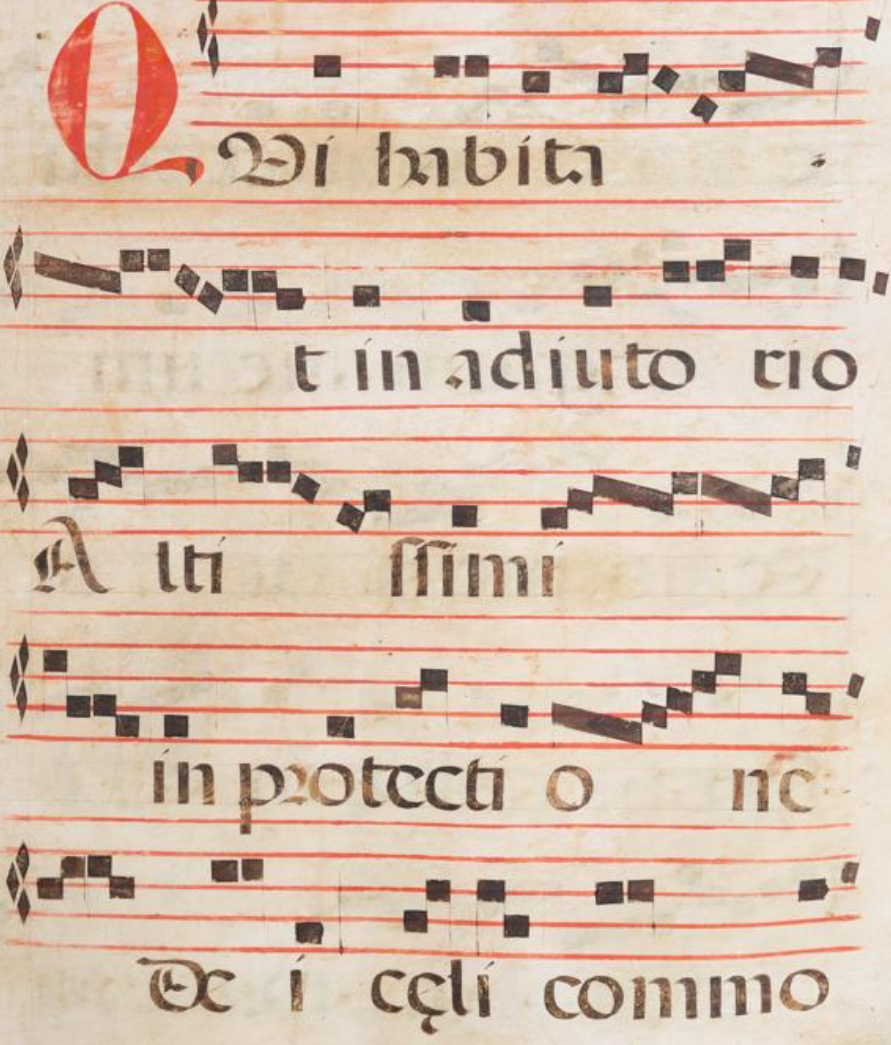 QVi habita
t in adiuto rio
A lti ssimi
in protecti o ne
De i cęli commo